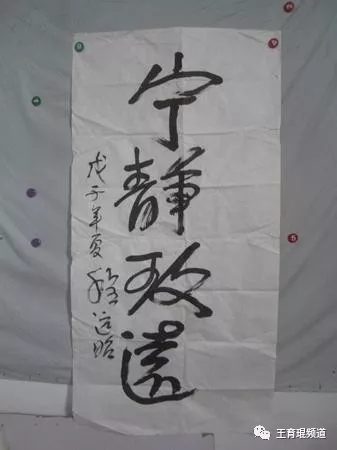 宁静致远
戊子年夏
王育琨频道